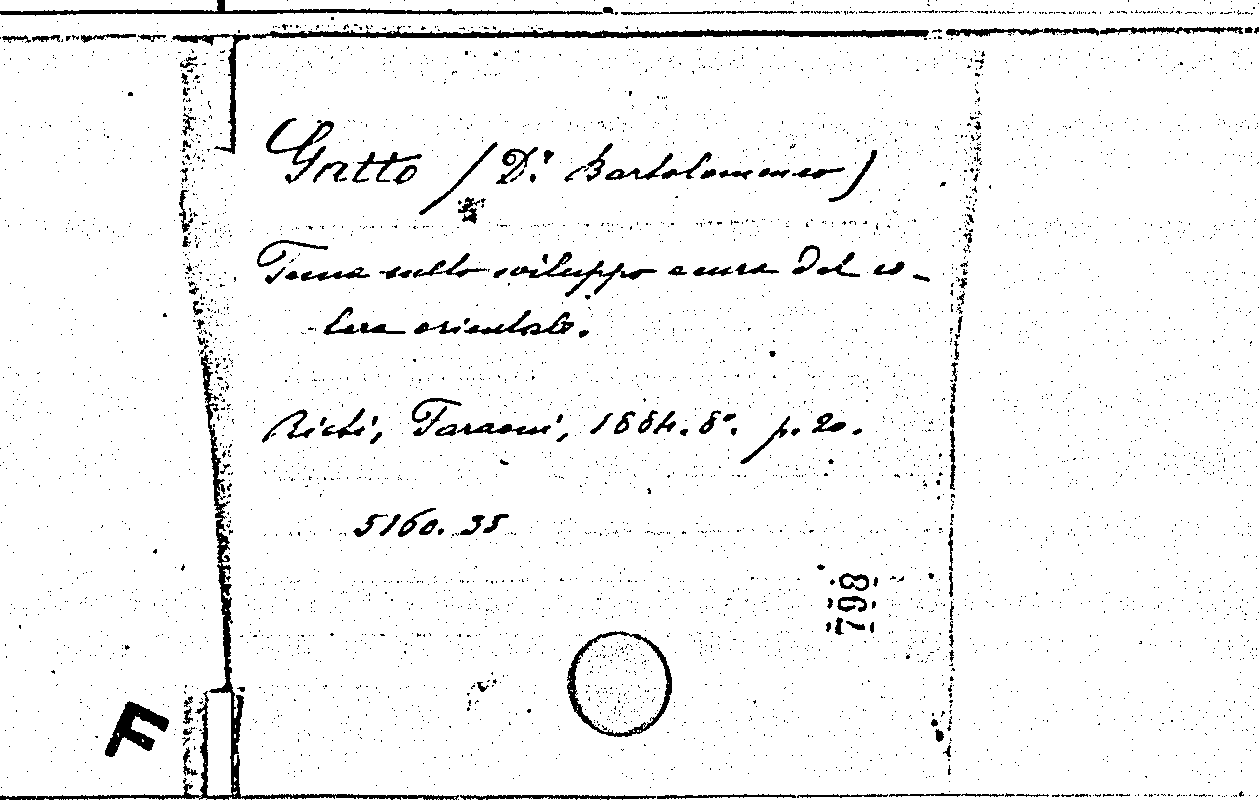 Gatto (Dr. Bartolomeneo)
Tema sullo sviluppo e cura del co-
lera orientale.
Rieti, Faraoni, 1884. 8º. p. 20.
5160. 35
798
F